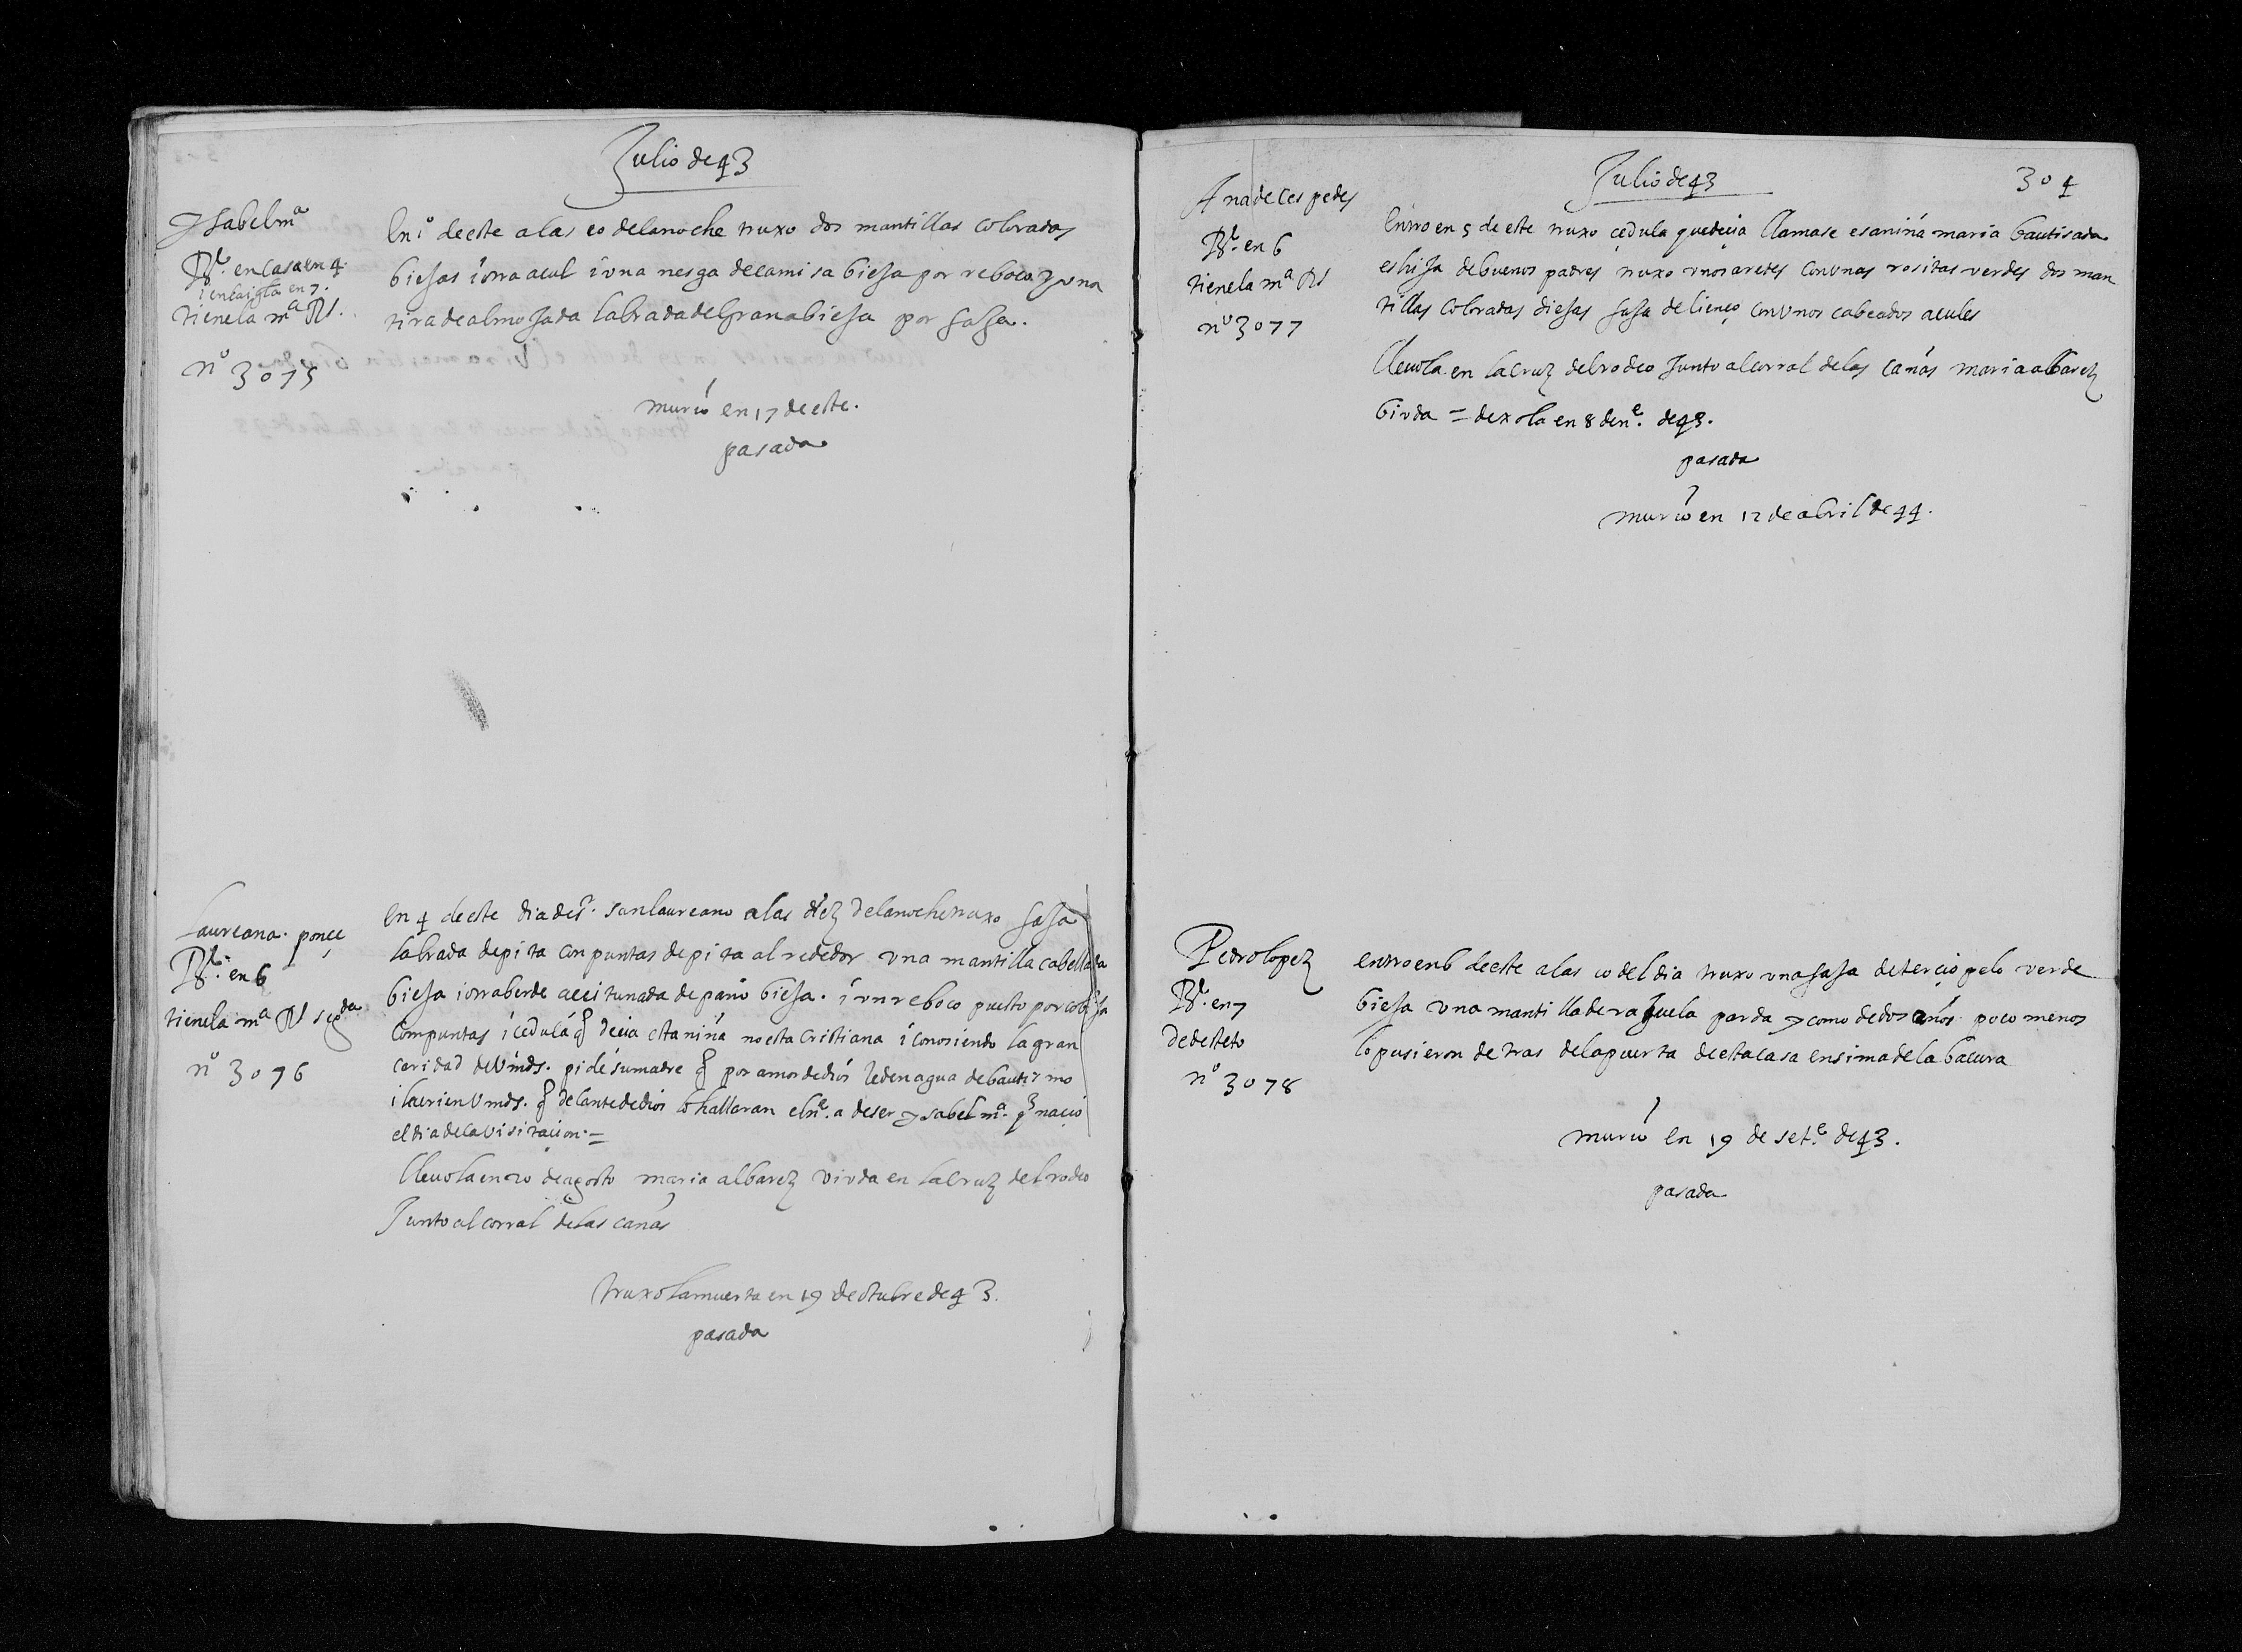 Julio de 43
Ysabel mª
Bº. en casa en 4.
i en la igla en 7.
tienela mª
nº 3075
En 1º de este a las 10 de la noche truxo dos mantillas coloradas
biejas i otra acul i una nesga de camisa bieja por reboco y una
tira de almojada labrada de grana bieja por faja.
murio en 17 de este.
pasada
Laureana ponçe
Bº. en 6
tienela mª segda
nº 3076
En 4 de este dia de sr. san laureano a las diez de la noche truxo faja
labrada de pita con puntas de pita al rededor una mantilla cabellada
bieja i otra berde aceitunada de paño bieja. i un reboco puesto por cobija
con puntas i cedula q decia esta niña no esta cristiana i conosiendo la gran
caridad de Vmds. pide su madre q por amor de dios le den agua de bautismo
i la crien Vmds. q delante de dios lo hallaran el ne. a de ser ysabel mª. q nacio
el dia de la visitacion. =
lleuola en 20 de agosto maria albarez viuda en la cruz del rodeo
Junto al corral de las cañas
truxola muerta en 19 de otubre de 43.
pasada
Julio de 43
304
Ana de cespedes
Bº. en 6
tienela mª
nº 3077
Entro en 5 de este truxo çedula que decia llamase esa niña maria bautisada
es hija de buenos padres truxo unos aretes con unas rositas verdes dos man
tillas coloradas biejas faja de lienço con unos cabeados acules
lleuola en la cruz del rodeo Junto al corral de las cañas maria albarez
biuda = dexola en 8 de ne. de 43.
pasada
murio en 12 de abril de 44.
Pedro lopez
Bº. en 7
de desteto
nº 3078
entro en 6 de este a las 10 del dia truxo una faja de terciopelo verde
bieja una mantilla de rajuela parda y como de dos años poco menos
lo pusieron de tras de la puerta de esta casa ensima de la bacura
murio en 19 de sete. de 43.
pasada